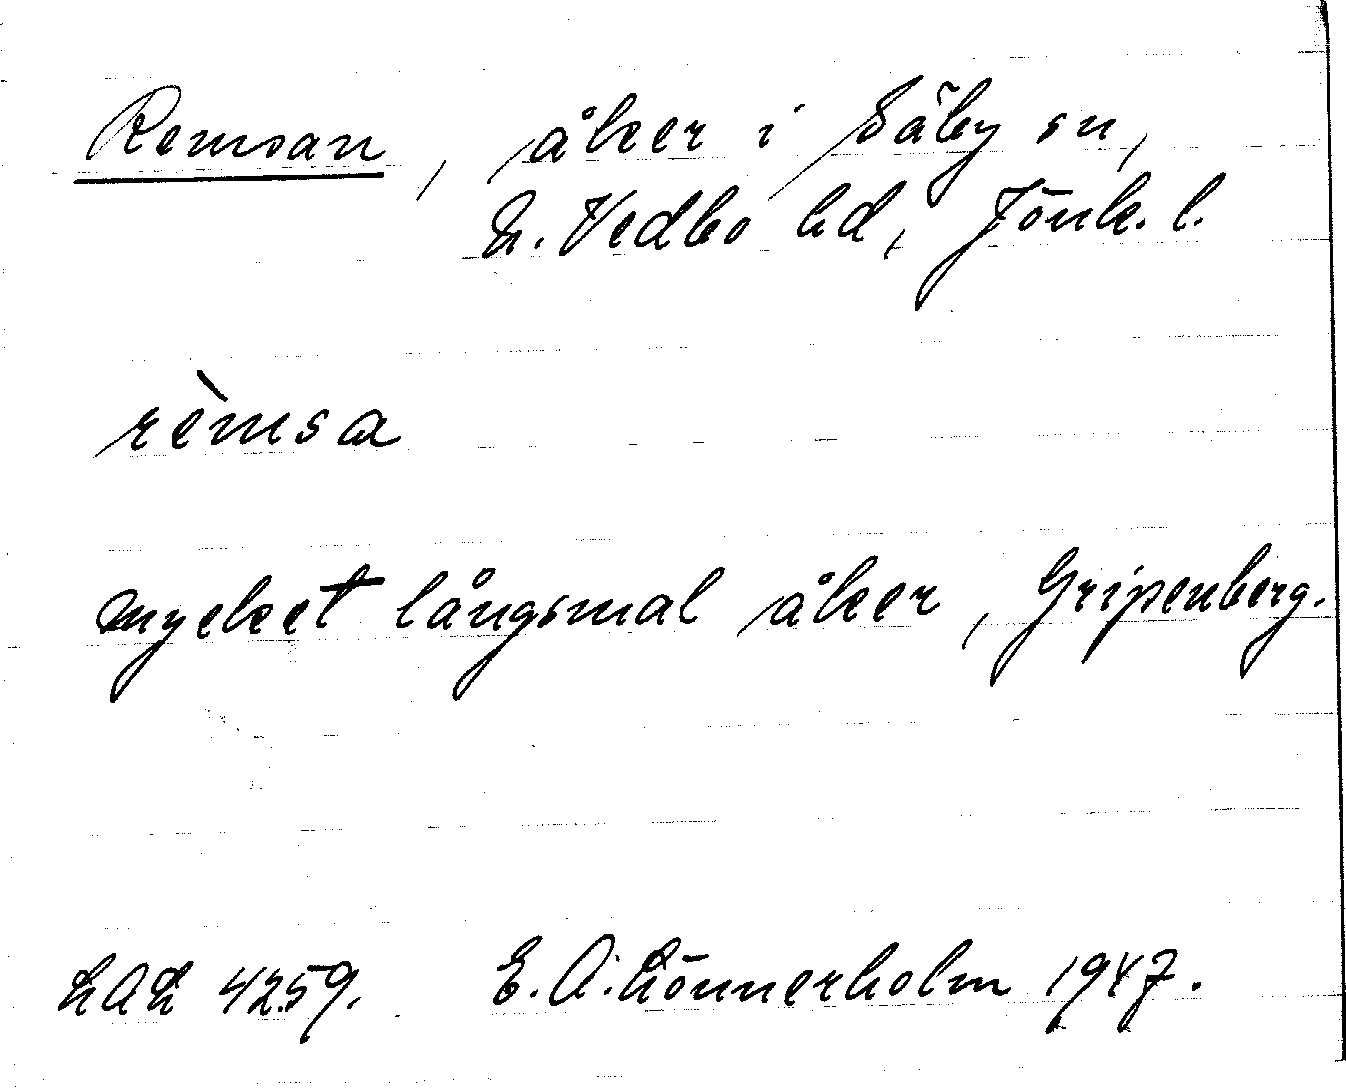 Remsan, åker i Säby sn,
N. Vedbo hd, Jönk. l.
rèmsa
mycket långsmal åker, Gripenberg.
LAL 4259. E. A. Lönnerholm 1947.